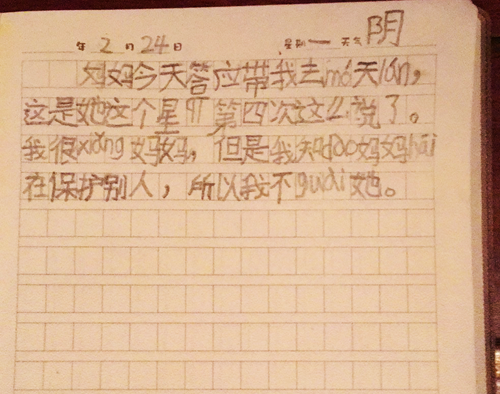 年 2 月 24 日 星期 一 天气 阴
妈妈今天答应带我去mó天lún，
这是她这个星qī第四次这么说了。
我很xiǎng妈妈，但是我知dào妈妈hái
在保护别人，所以我不guài她。